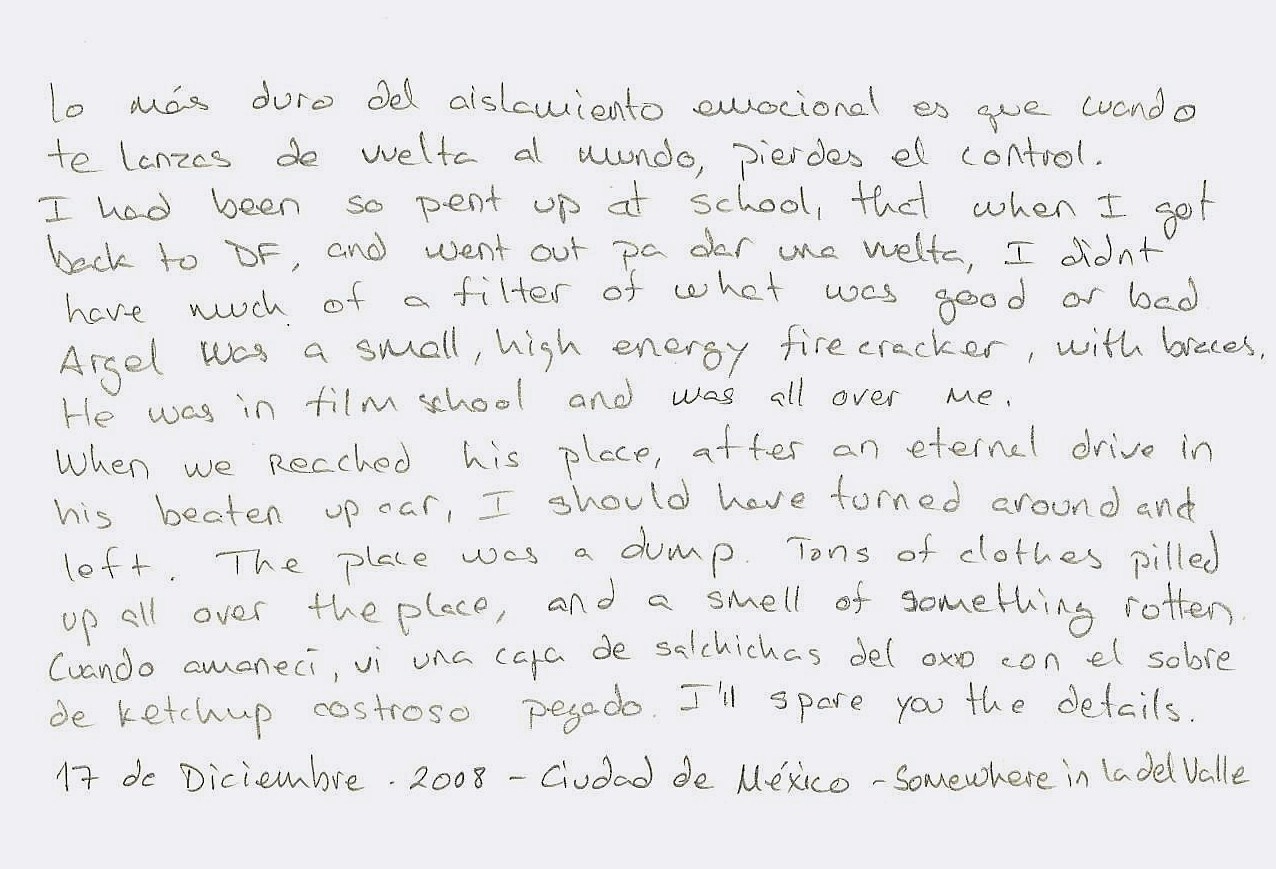 lo más duro del aislamiento emocional es que cuando
te lanzas de vuelta al mundo, pierdes el control.
I had been so pent up at school, that when I got
back to DF, and went out pa dar una vuelta, I didnt
have much of a filter of what was good or bad
Argel was a small, high energy firecracker, with braces.
He was in film school and was all over me.
When we Reached his place, after an eternal drive in
his beaten up car, I should have turned around and
left. The place was a dump. Tons of clothes pilled
up all over the place, and a smell of something rotten.
Cuando amanecí, vi una caja de salchichas del oxxo con el sobre
de ketchup costroso pegado. I'll spare you the details.
17 de Diciembre . 2008 - Ciudad de México - Somewhere in la del Valle